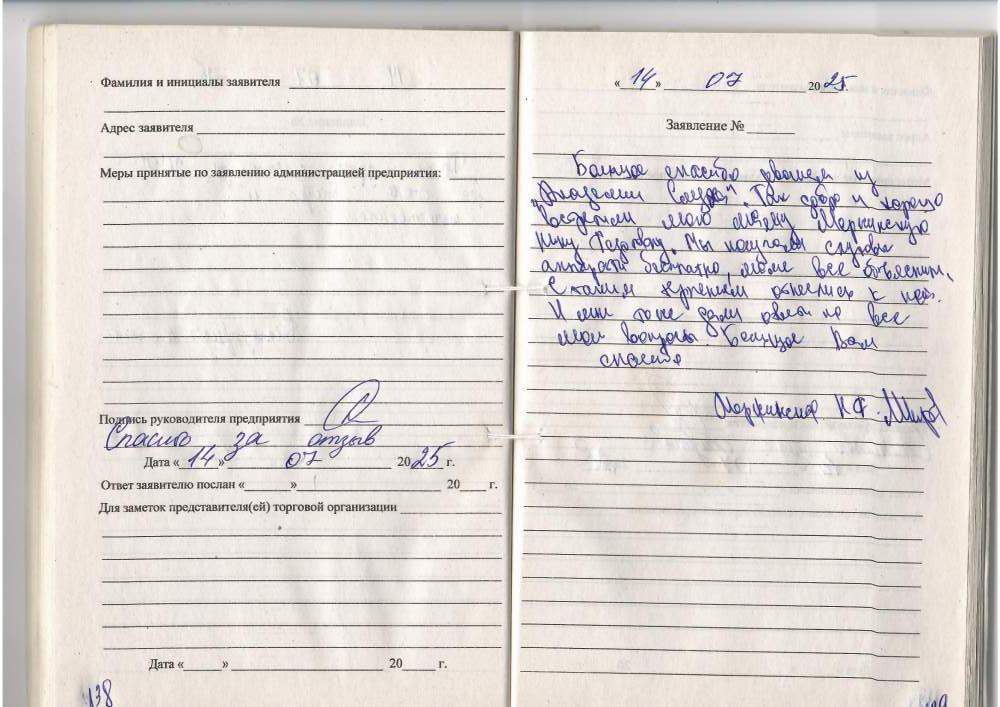 Фамилия и инициалы заявителя
Адрес заявителя
Меры принятые по заявлению администрацией предприятия:
Подпись руководителя предприятия
Спасибо за отзыв
Дата «14» 07 2025 г.
Ответ заявителю послан «    »     20   г.
Для заметок представителя(ей) торговой организации
Дата «    »     20   г.
138
«14» 07 2025 г.
Заявление №
Большое спасибо девочкам из
"Академии Слуха". Так добро и хорошо
встретили мою маму
Нину Федоровну. Мы получали слуховые
аппараты бесплатно, маме все объяснили,
с таким терпением отнеслись к ней.
И мне тоже дали ответы на все
мои вопросы. Большое Вам
спасибо